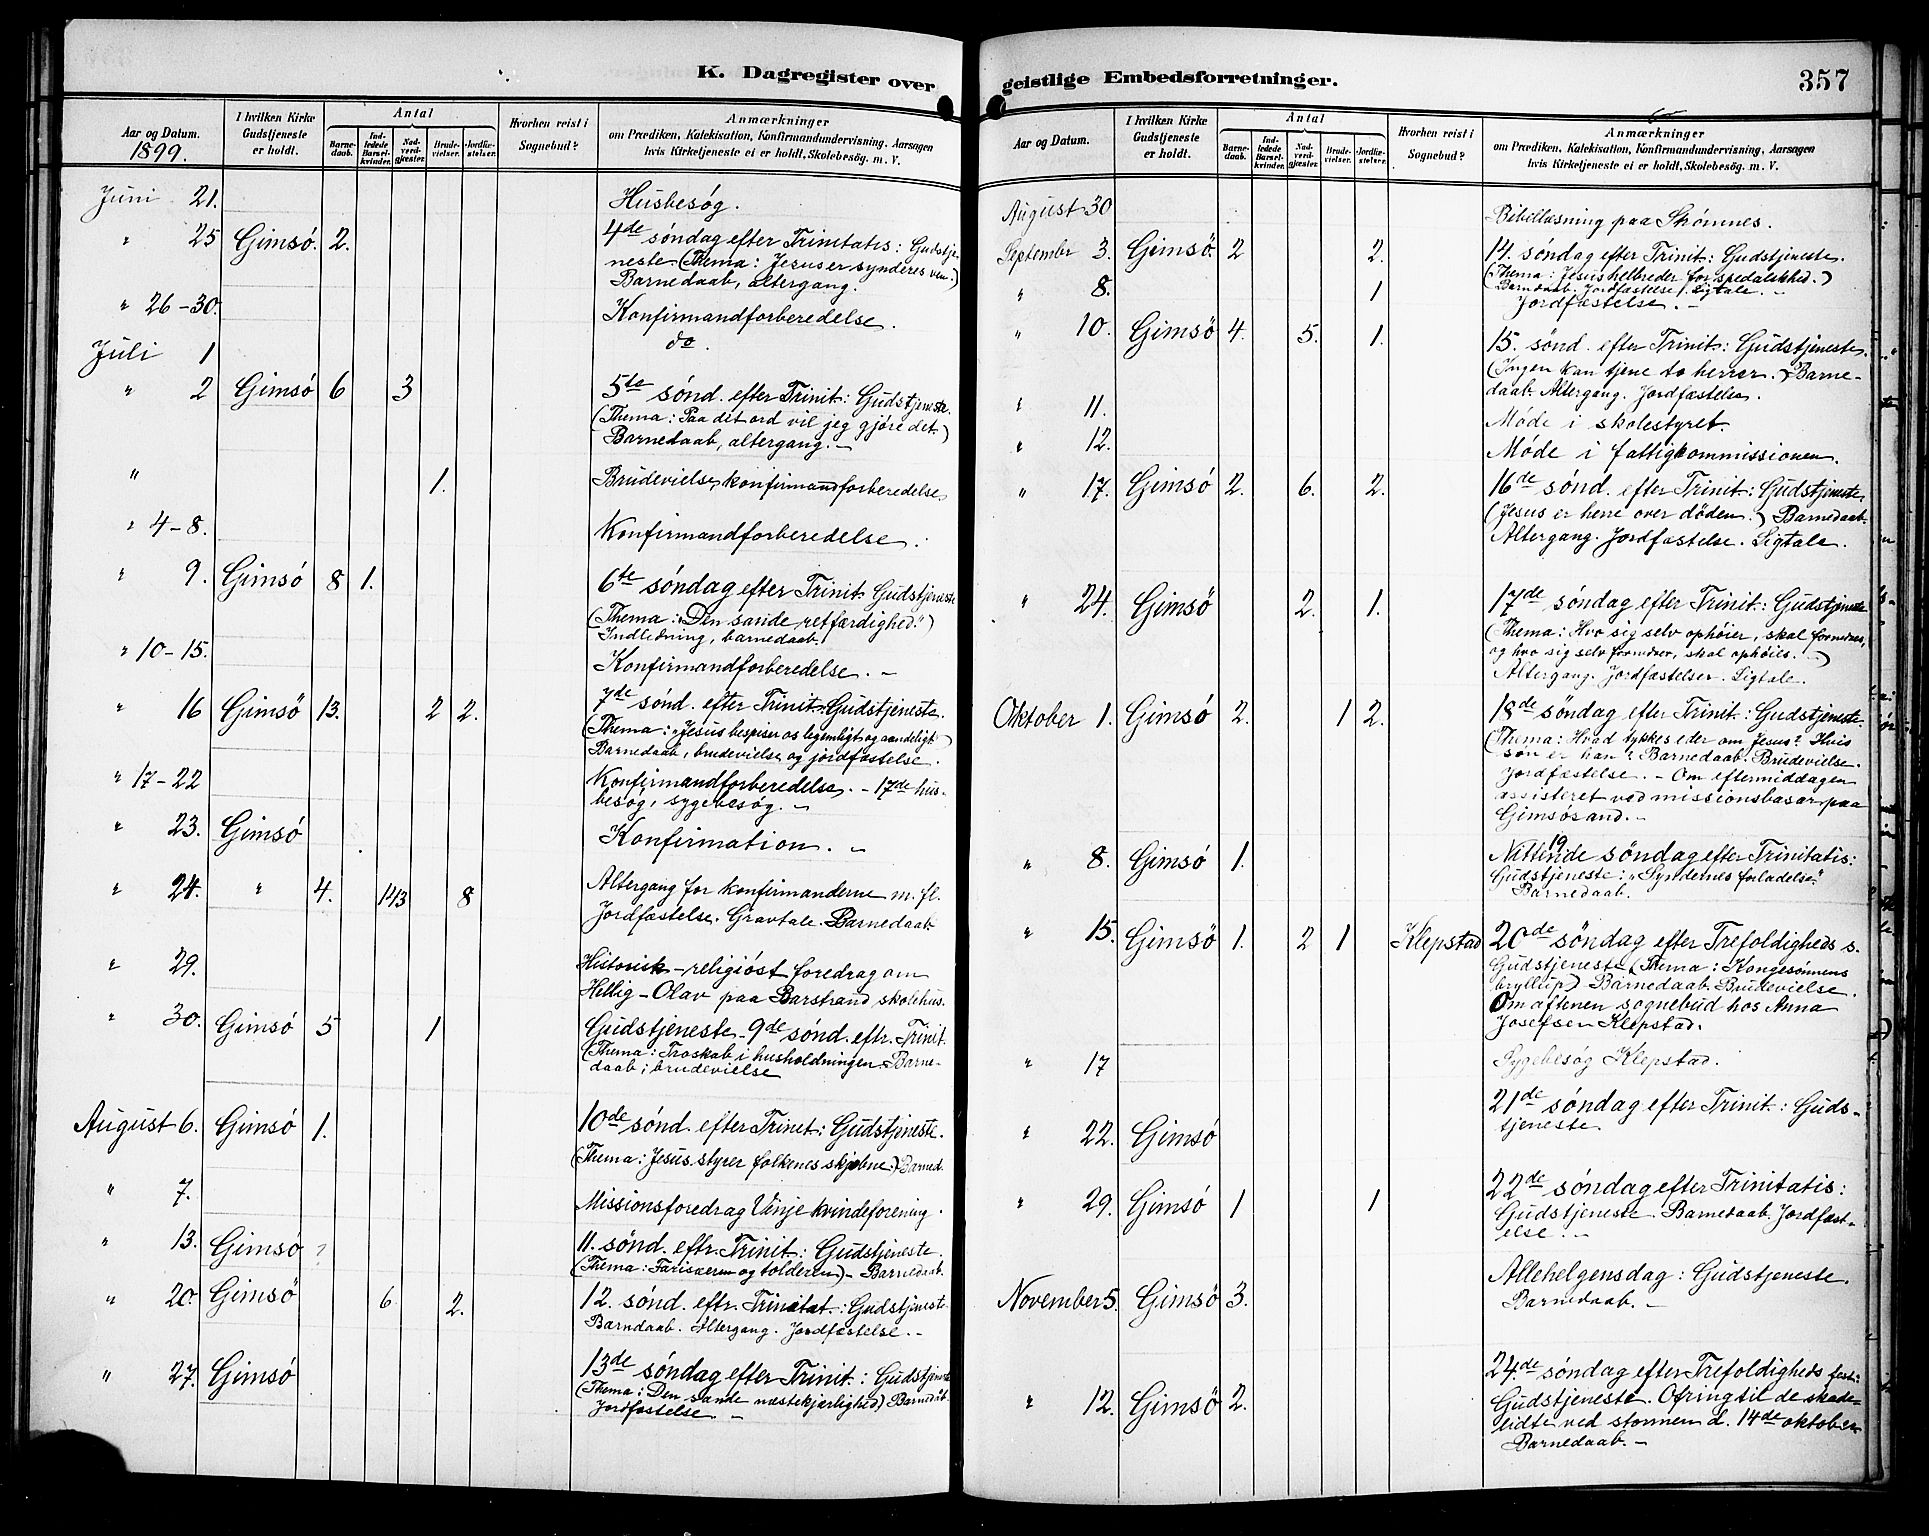 K. Dagregister over
Aar og Datum.
1899.
I hvilken Kirke
Gudstjeneste
er holdt.
Antal
Barne-
daab.
Ind-
ledede
Barsel-
kvinder.
Nad-
verd-
gjæster.
Brude-
vielser.
Jordfæ-
stelser.
Hvorhen reist i
Sognebud?
Anmærkninger
om Prædiken, Katekisation, Konfirmandundervisning, Aarsagen
hvis Kirketjeneste ei er holdt, Skolebesög. m. V.
Juni 21. Husbesøg.
" 25 Gimsö. 2. 4de söndag efter Trinitatis: Gudstje-
neste (Thema: Jesus er synderes ven.)
Barnedaab, altergang.
" 26-30. Konfirmandforberedelse.
Juli 1 do.
" 2 Gimsö 6 3 5te sönd. efter Trinit: Gudstjeneste.
(Thema: Paa dit ord vil jeg gjöre det.)
Barnedaab, altergang. -
" 1. Brudevielse, konfirmandforberedelse,
" 4-8. Konfirmandforberedelse.
" 9. Gimsö 8 1. 6te söndag efter Trinit. Gudstjeneste
(Thema: "Den sande retfærdighed.")
Indledning, barnedaab.
" 10-15. Konfirmandforberedelse. -
" 16 Gimsö 13. 2 2. 7de sönd. efter Trinit: Gudstjeneste.
(Thema: "Jesus bespiser os legemligt og aandeligt)
Barnedaab, brudevielse og jordfæstelse.
" 17-22 Konfirmandforberedelse. - 17de hus-
besög, sygebesög. -
" 23. Gimsö Konfirmation. -
" 24. " 4. 143 8 Altergang for konfirmanderne m. fl.
Jordfæstelse. Gravtale. Barnedaab.
" 29. Historisk-religiöst foredrag om
Hellig-Olav paa Barstrand skolehus.
" 30. Gimsö 5 1 Gudstjeneste - 9de sönd. eftr. Trinit.
(Thema: Troskab i husholdningen. Barne-
daab; brudevielse
August 6. Gimsö 1. 10de sönd. efter Trinit: Gudstjeneste.
(Thema: Jesus styrer folkenes skjæbne.) Barned.
" 7. Missionsforedrag Vinje kvindeforening.
" 13. Gimsö ? 11. sönd. eftr. Trinit.: Gudstjeneste.
(Thema: Farisæeren og tolderen) - Barnedaab.
" 20. Gimsö 6 2. 12. sönd. eftr. Trinitat: Gudstjeneste.
Barndaab. Altergang. Jordfæstelse. -
" 27. Gimsö 13de söndag efter Trinit.: Gudstjeneste
(Thema: Den sande næstekjærlighed) Barnedåb.
Jordfæstelse -
geistlige Embedsforretninger.
357
Aar og Datum.
I hvilken Kirke
Gudstjeneste
er holdt.
Antal
Barne-
daab.
Ind-
ledede
Barsel-
kvinder.
Nad-
verd-
gjæster.
Brude-
vielser.
Jordfæ-
stelser.
Hvorhen reist i
Sognebud?
Anmærkninger
om Prædiken, Katekisation, Konfirmandundervisning, Aarsagen
hvis Kirketjeneste ei er holdt, Skolebesög. m. V.
August 30 Bibellæsning paa Strömnes.
September 3. Gimsö. 2 2. 14. söndag efter Trinit: Gudstjeneste.
(Thema: Jesus helbreder for spedalskhed.)
Barnedaab. Jordfæstelse, Ligtale. -
" 8. 1 Jordfæstelse. -
" 10. Gimsö 4. 5. 1. 15. sönd. efter Trinit: Gudstjeneste.
(Ingen kan tjene to herrer.) Barne-
daab. Altergang. Jordfæstelse.
" 11. Möde i skolestyret.
" 12. Möde i fattigkommissionen.
" 17. Gimsö 2. 6. 2. 16de sönd. efter Trinit: Gudstjeneste.
(Jesus er herre over döden.) Barnedaab.
Altergang. Jordfæstelse. Ligtale.
" 24. Gimsö 2. 1. 17de söndag efter Trinit: Gudstjeneste
(Thema: Hvo sig selv ophöier, skal fornedres,
og hvo sig selv fornedrer, skal ophöies. -)
Altergang. Jordfæstelser. Ligtale.
Oktober 1. Gimsö 2. 1 2. 18de söndag efter Trinit: Gudstjeneste.
(Thema: Hvad tykkes eder om Jesus? Hvis
sön er han? Barnedaab. Brudevielse.
Jordfæstelse. - Om eftermiddagen
assisteret ved missionsbasar paa
Gimsösand. -
" 8. Gimsö 1. 19 Nittende söndag efter Trinitatis:
Gudstjeneste: "Syndernes forladelse."
Barnedaab.
" 15. Gimsö 1. 2 1 Klepstad 20de söndag efter Trefoldigheds s.
Gudstjeneste (Thema: Kongesönnens
bryllup) Barnedaab. Brudevielse.
Om aftenen sognebud hos Anna
Josefsen Klepstad.
" 17 Sygebesög Klepstad.
" 22. Gimsö 21de söndag efter Trinit.: Guds-
tjeneste.
" 29. Gimsö 1 1 22de söndag efter Trinitatis:
Gudstjeneste. Barnedaab. Jordfæst-
else. -
November 5. Gimsö 3. Allehelgensdag: Gudstjeneste.
Barnedaab. -
" 12. Gimsö 2. 24.de söndag efter Trefoldigheds fest:
Gudstjeneste. Ofring til de skade-
lidte ved stormen d. 14de oktober
Barnedaab. -